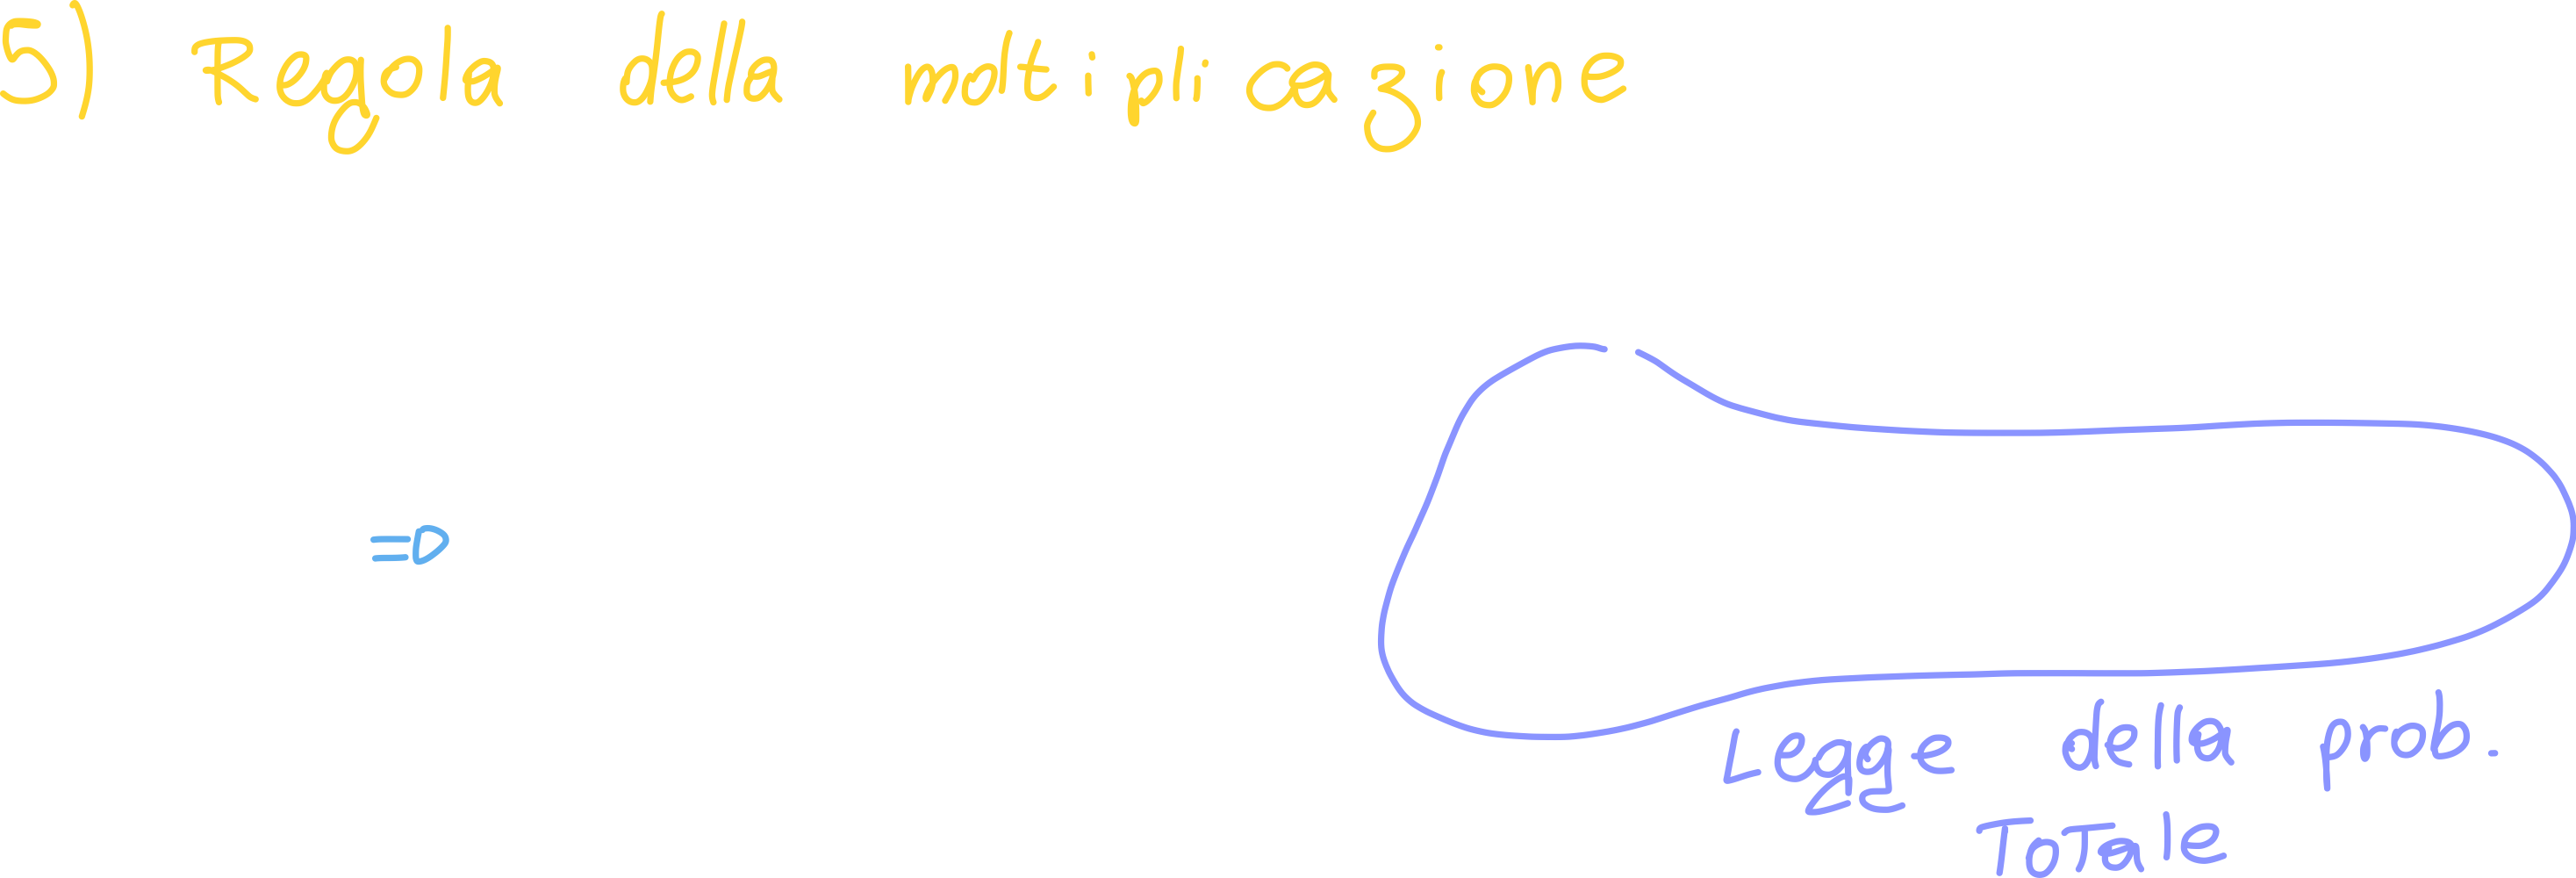 5) Regola della moltiplicazione
=>
Legge della prob.
Totale